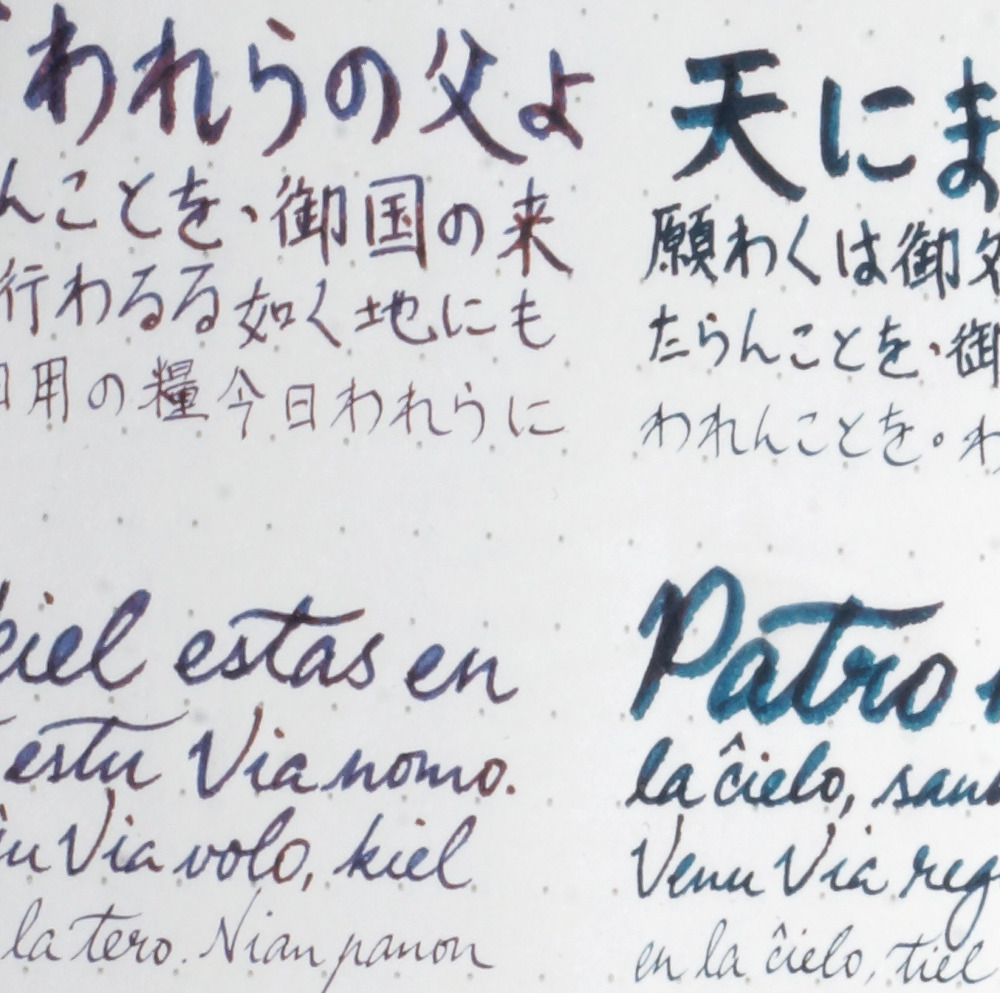 われらの父よ
んことを、御国の来
行わるる如く地にも
用の糧今日われらに
天にま
願わくは御名
たらんことを、御
われんことを。わ
kiel estas en
estu Via nomo.
Via volo, kiel
la tero. Nian panon
Patro
la ĉielo, sank
Venu Via reg
en la ĉielo, tiel